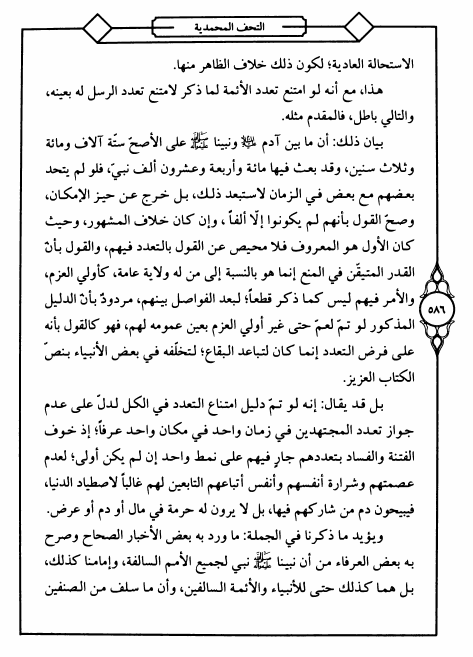 التحف المحمدية
الاستحالة العادية؛ لكون ذلك خلاف الظاهر منها.
هذا، مع أنه لو امتنع تعدد الأئمة لما ذكر لامتنع تعدد الرسل له بعينه،
والتالي باطل، فالمقدم مثله.
بيان ذلك: أن ما بين آدم ونبينا ﷺ على الأصحّ ستّة آلاف ومائة
وثلاث سنين، وقد بعث فيها مائة وأربعة وعشرون ألف نبيّ، فلو لم يتحد
بعضهم مع بعض في الزمان لاستبعد ذلك، بل خرج عن حيز الإمكان،
وصحّ القول بأنهم لم يكونوا إلّا ألفاً، وإن كان خلاف المشهور، وحيث
كان الأول هو المعروف فلا محيص عن القول بالتعدد فيهم، والقول بأنّ
القدر المتيقّن في المنع إنما هو بالنسبة إلى من له ولاية عامة، كأولي العزم،
والأمر فيهم ليس كما ذكر قطعاً؛ لبعد الفواصل بينهم، مردودٌ بأنّ الدليل
المذكور لو تمّ لعمّ حتى غير أولي العزم بعين عمومه لهم، فهو كالقول بأنه
على فرض التعدد إنما كان لتباعد البقاع؛ لتخلّفه في بعض الأنبياء بنصّ
الكتاب العزيز.
بل قد يقال: إنه لو تمّ دليل امتناع التعدد في الكل لدلّ على عدم
جواز تعدد المجتهدين في زمان واحد في مكان واحد عرفاً؛ إذ خوف
الفتنة والفساد بتعددهم جارٍ فيهم على نمط واحد إن لم يكن أولى؛ لعدم
عصمتهم وشرارة أنفسهم وأنفس أتباعهم التابعين لهم غالباً لاصطياد الدنيا،
فيبيحون دم من شاركهم فيها، بل لا يرون له حرمة في مال أو دم أو عرض.
ويؤيد ما ذكرنا في الجملة: ما ورد به بعض الأخبار الصحاح وصرح
به بعض العرفاء من أن نبينا ﷺ نبي لجميع الأمم السالفة، وإمامنا كذلك،
بل هما كذلك حتى للأنبياء والأئمة السالفين، وأن ما سلف من الصنفين
٥٨٦